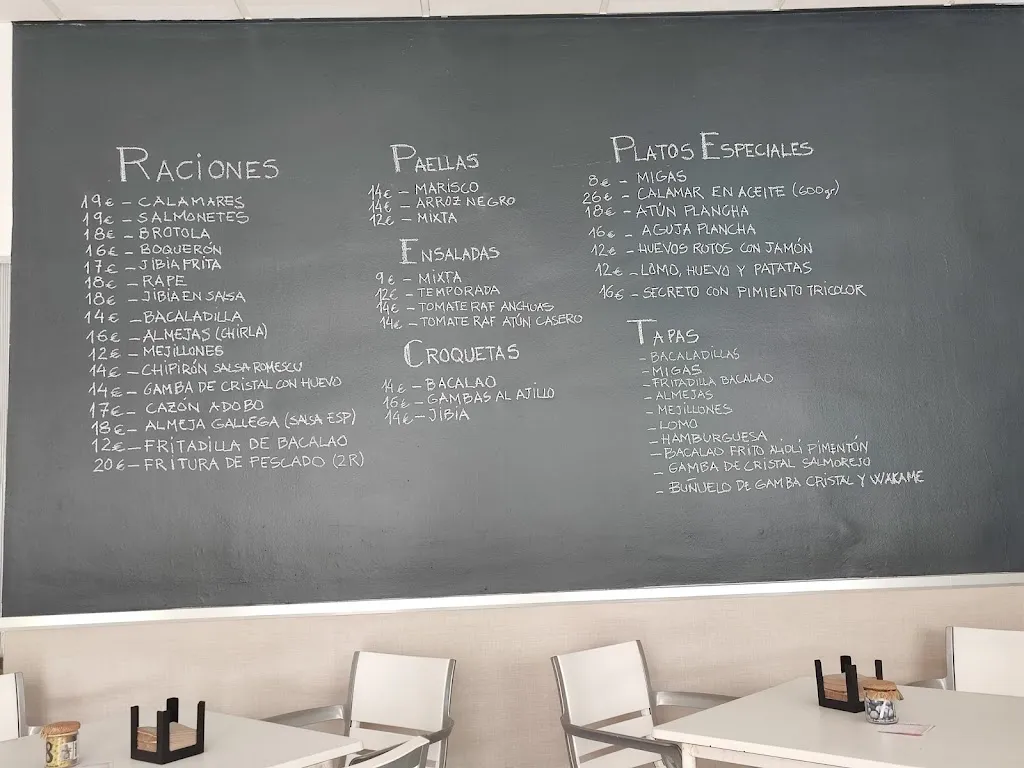 RACIONES
19€ - CALAMARES
19€ - SALMONETES
18€ - BROTOLA
16€ - BOQUERÓN
17€ - JIBIA FRITA
18€ - RAPE
18€ - JIBIA EN SALSA
14€ - BACALADILLA
16€ - ALMEJAS (CHIRLA)
12€ - MEJILLONES
14€ - CHIPIRÓN SALSA ROMESCU
14€ - GAMBA DE CRISTAL CON HUEVO
17€ - CAZÓN ADOBO
18€ - ALMEJA GALLEGA (SALSA ESP)
12€ - FRITADILLA DE BACALAO
20€ - FRITURA DE PESCADO (2R)
PAELLAS
14€ - MARISCO
14€ - ARROZ NEGRO
12€ - MIXTA
ENSALADAS
9€ - MIXTA
12€ - TEMPORADA
14€ - TOMATE RAF ANCHOAS
14€ - TOMATE RAF ATÚN CASERO
CROQUETAS
14€ - BACALAO
16€ - GAMBAS AL AJILLO
14€ - JIBIA
PLATOS ESPECIALES
8€ - MIGAS
26€ - CALAMAR EN ACEITE (600gr)
18€ - ATÚN PLANCHA
16€ - AGUJA PLANCHA
12€ - HUEVOS ROTOS CON JAMÓN
12€ - LOMO, HUEVO Y PATATAS
16€ - SECRETO CON PIMIENTO TRICOLOR
TAPAS
- BACALADILLAS
- MIGAS
- FRITADILLA BACALAO
- ALMEJAS
- MEJILLONES
- LOMO
- HAMBURGUESA
- BACALAO FRITO ALIOLI PIMENTÓN
- GAMBA DE CRISTAL SALMOREJO
- BUÑUELO DE GAMBA CRISTAL Y WAKAME